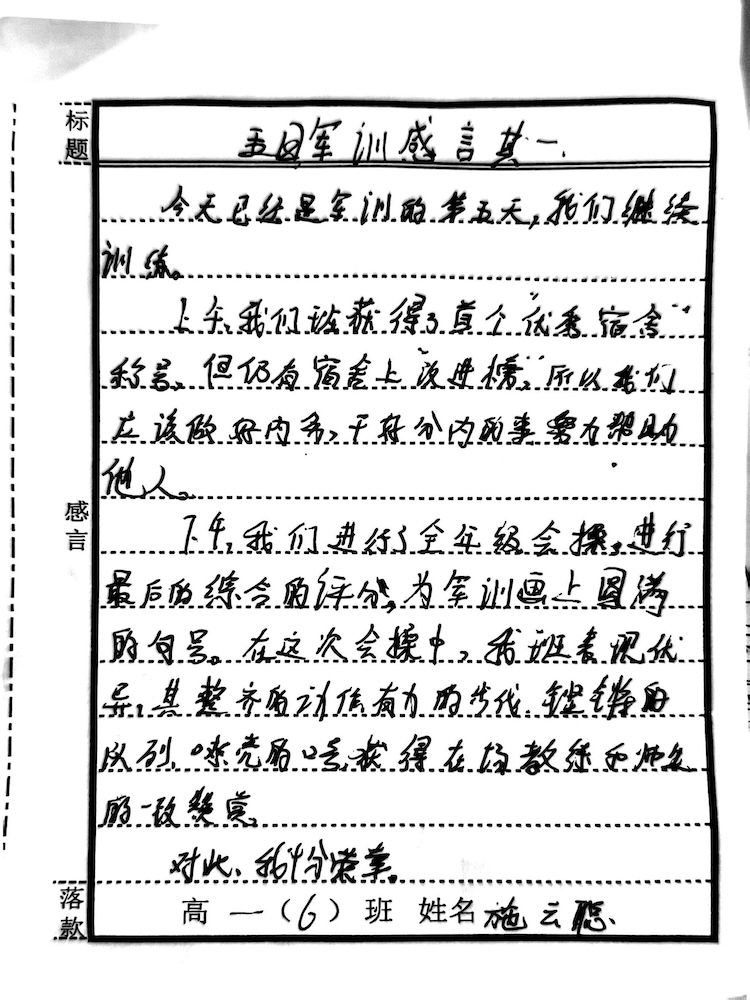 标题
军训感言其一.
今天已经是军训的第五天，我们继续
训练。
上午，我们班获得了首个“优秀宿舍”
称号，但仍有宿舍上“改进榜”，所以我们
应该做好内务，干好分内的事努力帮助
他人。
感言
下午，我们进行了全年级会操，进行
最后的综合的评分，为军训画上圆满
的句号。在这次会操中，我班表现优
异，其整齐的动作有力的步伐，铿锵的
队列，嘹亮的口号，获得在场教练和师生
的一致赞赏。
对此，我十分荣幸。
落款
高一（6）班 姓名 施云聪.